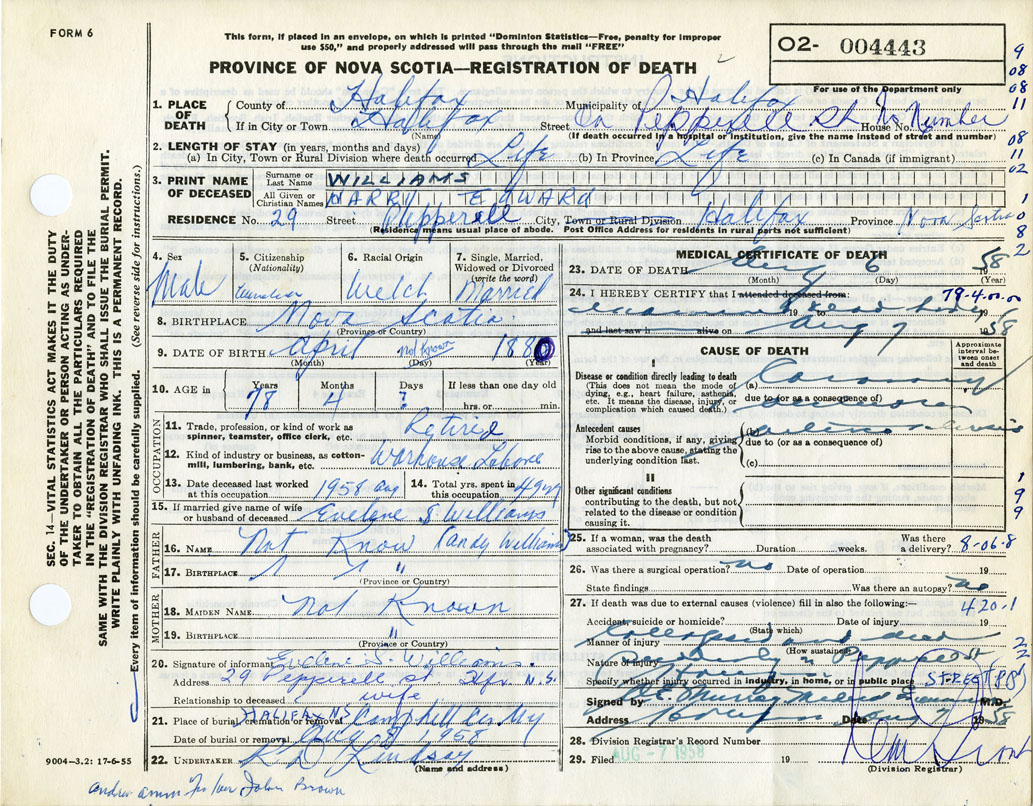 FORM 6
This form, if placed in an envelope, on which is printed "Dominion Statistics—Free, penalty for improper
use $50," and properly addressed will pass through the mail "FREE"
02- 004443
For use of the Department only
PROVINCE OF NOVA SCOTIA—REGISTRATION OF DEATH
1. PLACE OF DEATH
County of Halifax Municipality of Halifax
If in City or Town Halifax Street On Pepperell St House No. No Number
(Name) (If death occurred in a hospital or institution, give the name instead of street and number)
2. LENGTH OF STAY (in years, months and days)
(a) In City, Town or Rural Division where death occurred Life (b) In Province Life (c) In Canada (if immigrant)
3. PRINT NAME OF DECEASED
Surname or Last Name WILLIAMS
All Given or Christian Names HARRY EDWARD
RESIDENCE No. 29 Street Pepperell City, Town or Rural Division Halifax Province Nova Scotia
(Residence means usual place of abode. Post Office Address for residents in rural parts not sufficient)
4. Sex Male
5. Citizenship (Nationality)
6. Racial Origin Welch
7. Single, Married, Widowed or Divorced (write the word) Married
8. BIRTHPLACE Nova Scotia
(Province or Country)
9. DATE OF BIRTH April not known 1880
(Month) (Day) (Year)
10. AGE in Years 78 Months 4 Days ? If less than one day old
hrs. or min.
OCCUPATION
11. Trade, profession, or kind of work as spinner, teamster, office clerk, etc. Retired
12. Kind of industry or business, as cotton-mill, lumbering, bank, etc. Warhouse Labore
13. Date deceased last worked at this occupation 1958 Aug 14. Total yrs. spent in this occupation
15. If married give name of wife or husband of deceased Evelene S Williams
FATHER
16. NAME Not Know (Andy Williams)
17. BIRTHPLACE " " "
(Province or Country)
MOTHER
18. MAIDEN NAME Not Known
19. BIRTHPLACE "
(Province or Country)
20. Signature of informant Evelene S. Williams.
Address 29 Pepperell St Hfx N.S.
Relationship to deceased wife
21. Place of burial, cremation or removal HALIFAX NS Camp Hill
Date of burial or removal Aug 8, 1958
22. UNDERTAKER Lindsay
(Name and address)
MEDICAL CERTIFICATE OF DEATH
23. DATE OF DEATH Aug 6 1958
(Month) (Day) (Year)
24. I HEREBY CERTIFY that I attended deceased from: 79-4.00.00
examined dead body 19 to 19
and last saw h alive on Aug 7 1958
CAUSE OF DEATH
Approximate interval between onset and death
I
Disease or condition directly leading to death
(This does not mean the mode of dying, e.g., heart failure, asthenia, etc. It means the disease, injury, or complication which caused death.)
(a) Coronary
due to (or as a consequence of)
Antecedent causes
Morbid conditions, if any, giving rise to the above cause, stating the underlying condition last.
(b)
due to (or as a consequence of)
(c)
II
Other significant conditions
contributing to the death, but not related to the disease or condition causing it.
25. If a woman, was the death associated with pregnancy? Duration weeks. Was there a delivery? 8-06-8
26. Was there a surgical operation? no Date of operation 19
State findings Was there an autopsy? no
27. If death was due to external causes (violence) fill in also the following:— 420-1
Accident, suicide or homicide? Date of injury 19
(State which)
Manner of injury Collapsed and died
(How sustained)
Nature of injury Suddenly in Pepperell St
Specify whether injury occurred in industry, in home, or in public place STREET
Signed by Murray Medical M.D.
Address Date Aug 7 1958
28. Division Registrar's Record Number
29. Filed AUG -7 1958 19
(Division Registrar)
SEC. 14—VITAL STATISTICS ACT MAKES IT THE DUTY
OF THE UNDERTAKER OR PERSON ACTING AS UNDER-
TAKER TO OBTAIN ALL THE PARTICULARS REQUIRED
IN THE "REGISTRATION OF DEATH" AND TO FILE THE
SAME WITH THE DIVISION REGISTRAR WHO SHALL ISSUE THE BURIAL PERMIT.
WRITE PLAINLY WITH UNFADING INK. THIS IS A PERMANENT RECORD.
Every item of information should be carefully supplied. (See reverse side for instructions.)
9004-3.2: 17-6-55
John Brown
9
08
08
11
08
11
02
1
0
8
2
1
9
9